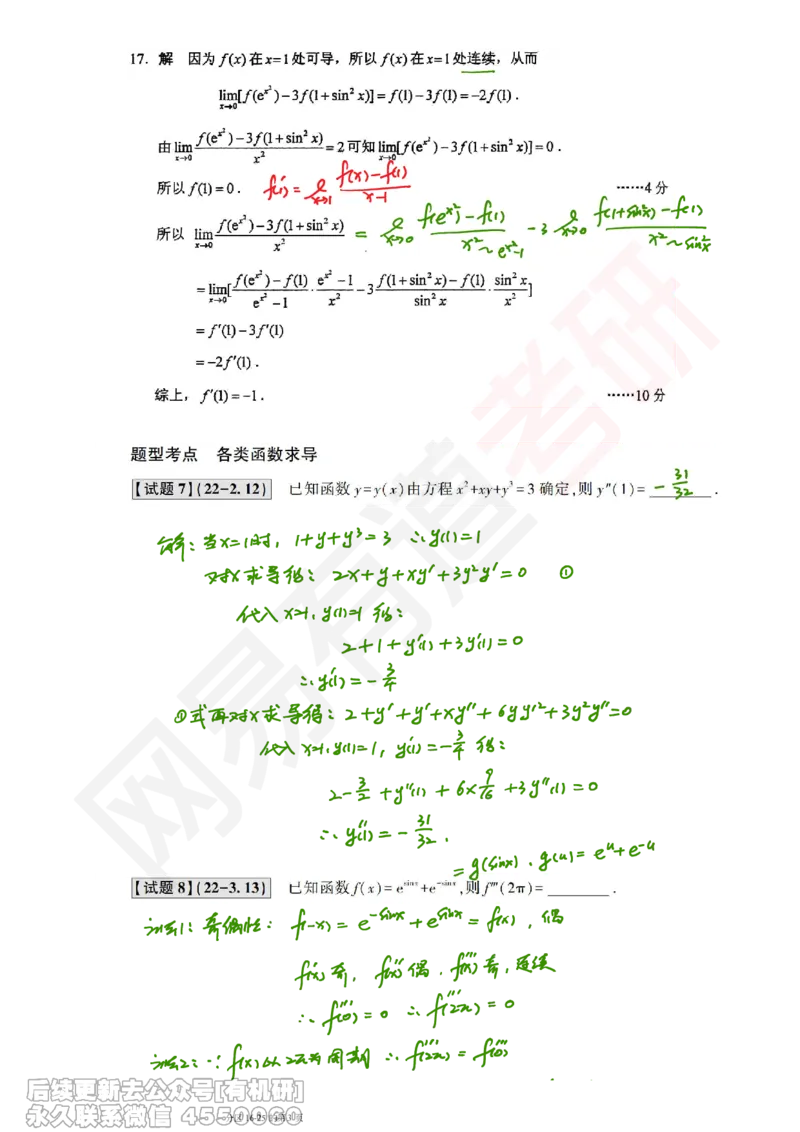 17. 解 因为 f(x) 在 x=1 处可导，所以 f(x) 在 x=1 处连续，从而
lim_{x→0}[f(e^{x²})−3f(1+sin²x)]=f(1)−3f(1)=−2f(1).
由 lim_{x→0} (f(e^{x²})−3f(1+sin²x))/x² =2 可知 lim_{x→0}[f(e^{x²})−3f(1+sin²x)]=0.
所以 f(1)=0. f'(1)= lim_{x→1} (f(x)−f(1))/(x−1) ……4 分
所以 lim_{x→0} (f(e^{x²})−3f(1+sin²x))/x² = lim_{x→0} (f(e^{x²})−f(1))/(x²~e^{x²}−1) −3 lim_{x→0} (f(1+sin²x)−f(1))/(x²~sin²x)
=lim_{x→0}[(f(e^{x²})−f(1))/(e^{x²}−1)·(e^{x²}−1)/x²−3(f(1+sin²x)−f(1))/(sin²x)·(sin²x)/x²]
=f′(1)−3f′(1)
=−2f′(1).
综上，f′(1)=−1. ……10 分
题型考点 各类函数求导
【试题 7】(22−2.12) 已知函数 y=y(x) 由方程 x²+xy+y³=3 确定,则 y″(1)= −31/32 .
解：当x=1时，1+y+y³=3 ∴y(1)=1
对x求导得：2x+y+xy′+3y²y′=0 ①
代入 x=1, y(1)=1 得：
2+1+y′(1)+3y′(1)=0
∴y′(1)=−3/4
①式再对x求导得：2+y′+y′+xy″+6yy′²+3y²y″=0
代入 x=1, y(1)=1, y′(1)=−3/4 得：
2−3/2+y″(1)+6×9/16+3y″(1)=0
∴y″(1)=−31/32.
=g(sinx). g(u)=e^u+e^{−u}
【试题 8】(22−3.13) 已知函数 f(x)=e^{sinx}+e^{−sinx},则 f‴(2π)= ______ .
法1：奇偶性：f(−x)=e^{−sinx}+e^{sinx}=f(x)，偶
f′(x)奇，f″(x)偶，f‴(x)奇，连续
∴f‴(0)=0 ∴f‴(2π)=0
法2：∵f(x)以2π为周期 ∴f‴(2π)=f‴(0)
网易有道考研
后续更新去公众号[有机研]
永久联系微信 4550030